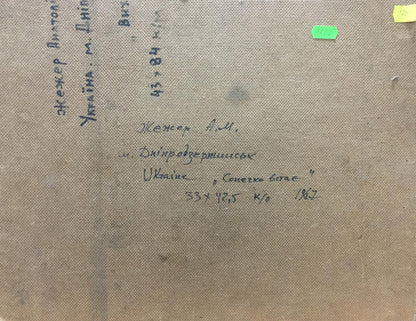 Жежер Анатолі
Україна. м. Дніп
43 x 84 к/м
Жежер А.М.
м. Дніпродзержинськ
UKraine „Сонечко вітає"
33 x 42,5 к/о 1967